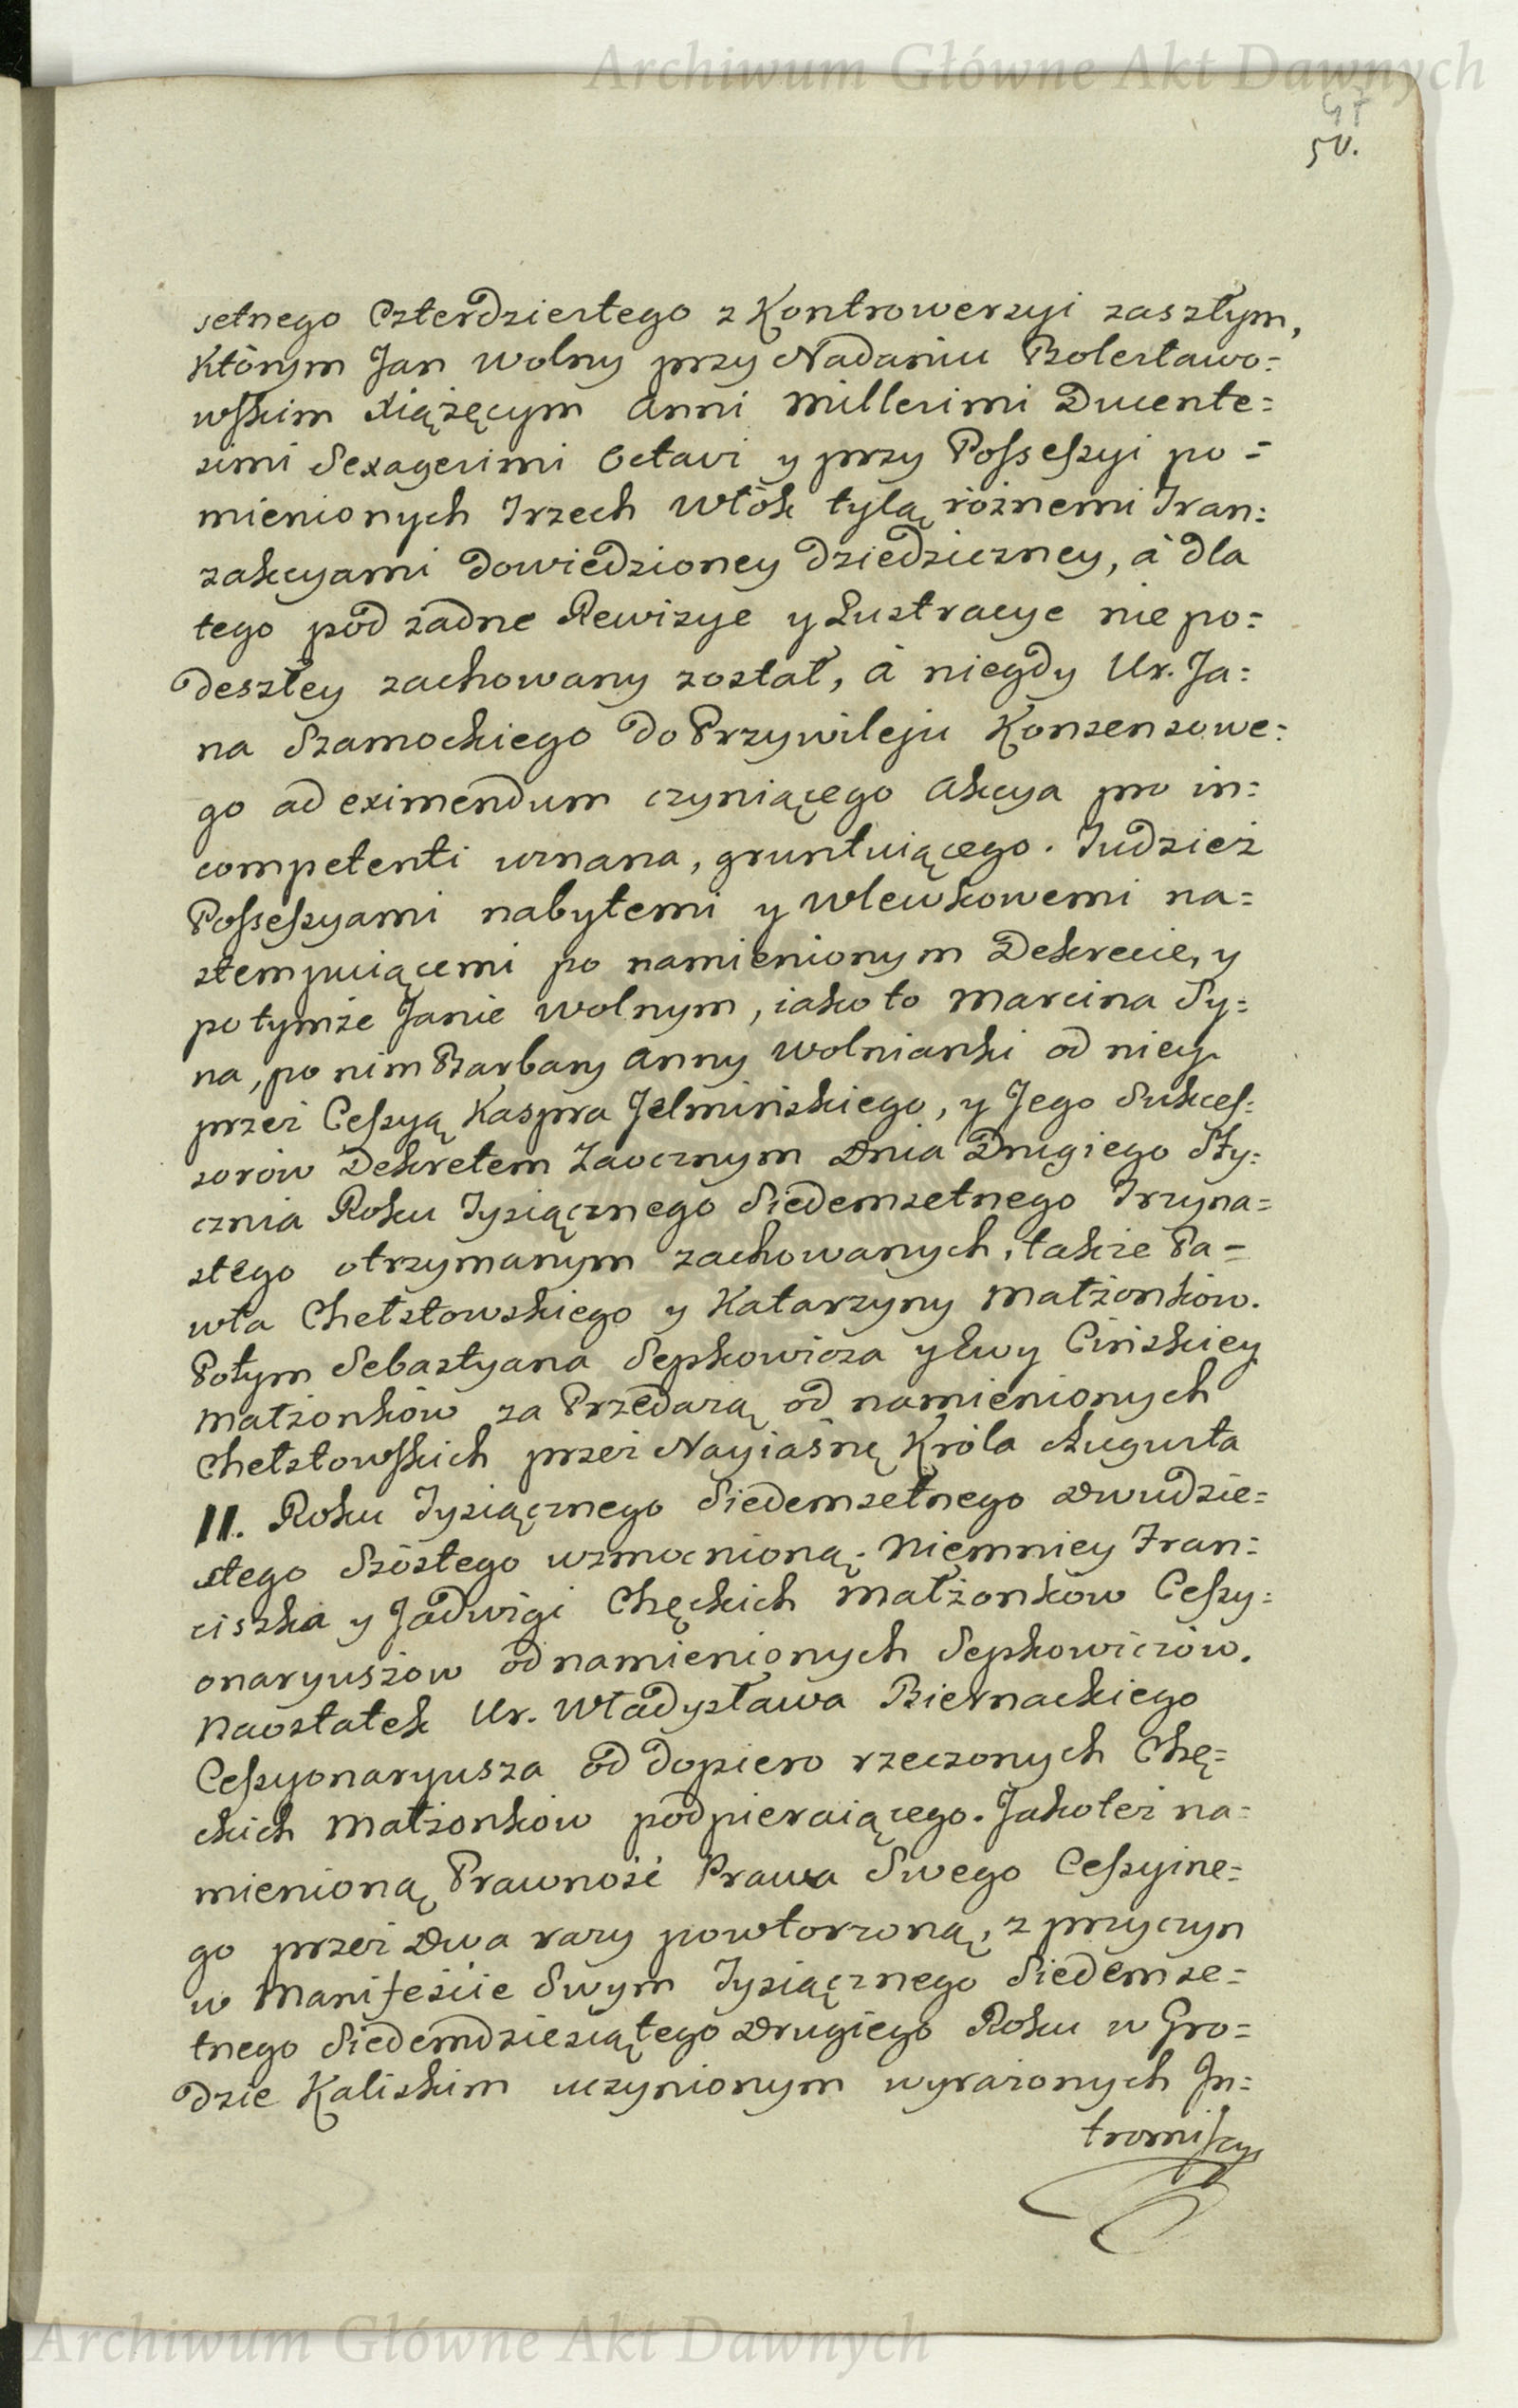 Archiwum Główne Akt Dawnych
47
50.
setnego Czterdziestego z Kontrowerzyi zaszłym,
którym Jan Wolny przy Nadaniu Bolesławo=
wskim Xiążęcym Anni Millesimi Ducente=
simi Sexagesimi Octavi y przy Possessyi po=
mienionych Trzech Włók tylą różnemi Tran=
zakcyami dowiedzioney dziedziczney, á dla
tego pod żadne Rewizye y Lustracye nie po=
deszłey zachowany został, á niegdy Ur. Ja=
na Szamockiego do Przywileju Konsensowe=
go ad eximendum czyniącego Akcya pro in=
competenti uznana, gruntuiącego. Tudzież
Possessyami nabytemi y wlewkowemi na=
stempuiącemi po namienionym Dekrecie, y
po tymże Janie Wolnym, iako to Marcina Sy=
na, po nim Barbary Anny Wolnianki od niey
przez Cessyą Kaspra Jelmińskiego, y Jego Sukces=
sorów Dekretem Zaocznym Dnia Drugiego Sty=
cznia Roku Tysiącznego Siedemsetnego Trzyna=
stego otrzymanym zachowanych, także Pa=
wła Chełstowskiego y Katarzyny Małżonków.
Potym Sebastyana Sepkowicza y Ewy Cińskiey
Małżonków za Przedażą od namienionych
Chełstowskich przez Nayiaśnę Króla Augusta
II. Roku Tysiącznego Siedemsetnego Dwudzie=
stego Szóstego wzmocnioną. Niemniey Fran=
ciszka y Jadwigi Chęckich Małżonków Cessy=
onaryuszow od namienionych Sepkowiczów.
Naostatek Ur. Władysława Biernackiego
Cessyonaryusza od dopiero rzeczonych Chę=
ckich Małżonków podpieraiącego. Jakoteż na=
mienioną Prawność Prawa Swego Cessyine=
go przez Dwa razy powtorzoną, z przyczyn
w Manifeście Swym Tysiącznego Siedemse=
tnego Siedemdziesiątego Drugiego Roku w Gro=
dzie Kaliskim uczynionym wyrażonych In=
tromissyi
Archiwum Główne Akt Dawnych